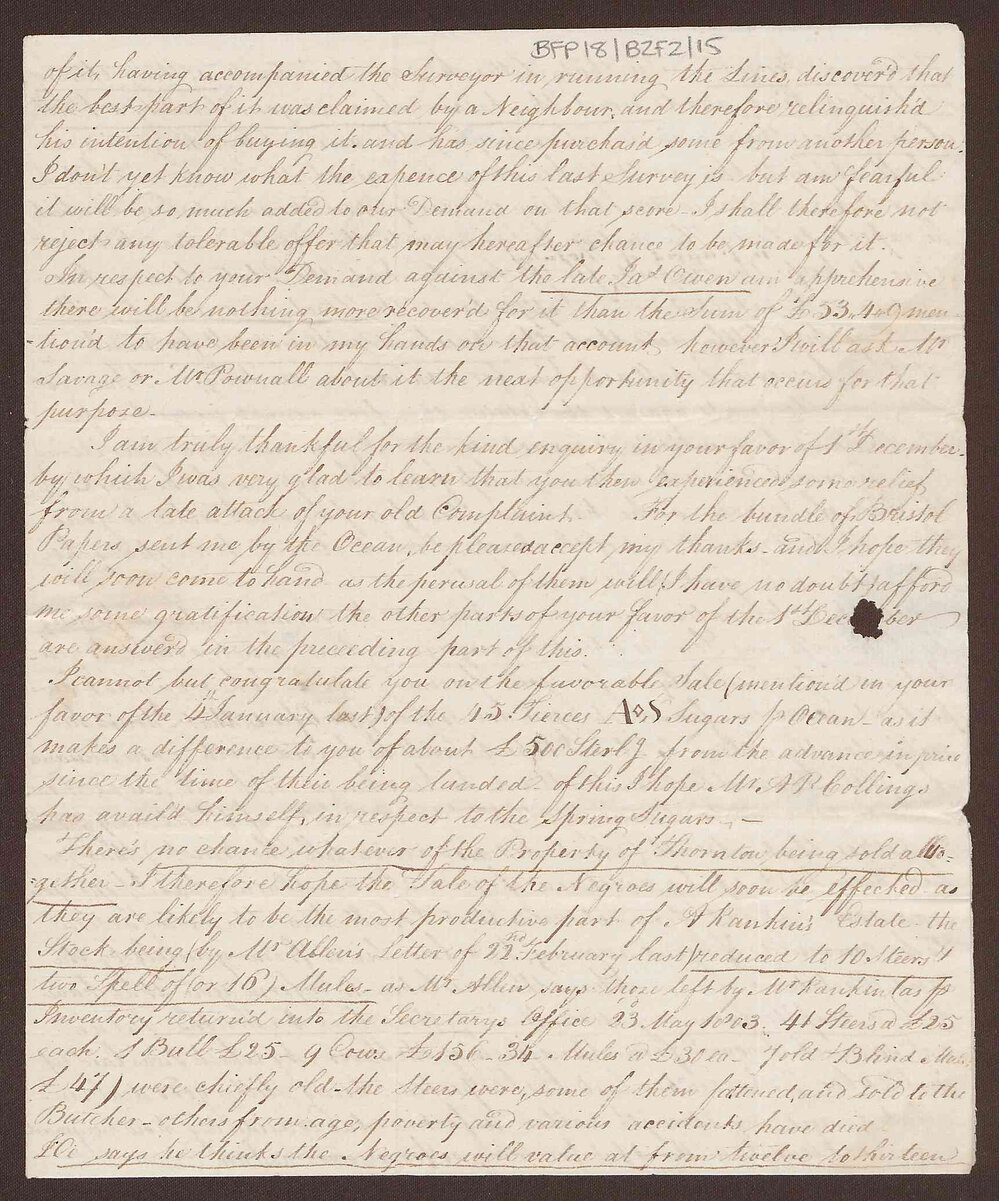 BFP18/B2F2/15
of it, having accompanied the Surveyor in running the Lines, discover'd that
the best part of it was claimed by a Neighbour, and therefore relinquish'd
his intention of buying it, and has since purchas'd some from another person.
I don't yet know what the expence of this last Survey is but am fearful
it will be so much added to our Demand on that score - I shall therefore not
reject any tolerable offer that may hereafter chance to be made for it.
In respect to your Demand against the late Jas Owen am apprehensive
there will be nothing more recover'd for it than the Sum of £53.4.9 men-
-tion'd to have been in my hands on that account, however I will ask Mr
Savage or Mr Pownall about it the next opportunity that occurs for that
purpose -
I am truly thankful for the kind enquiry in your favor of 1st December -
by which I was very glad to learn that you then experienced some relief
from a late attack of your old Complaint. For the bundle of Bristol
Papers, sent me by the Ocean, be pleased accept my thanks - and I hope they
will soon come to hand as the perusal of them will (I have no doubt) afford
me some gratification the other parts of your favor of the 1st December
are answer'd in the preceeding part of this.
I cannot but congratulate you on the favorable Sale (mention'd in your
favor of the 4th January last) of the 45 Tierces A◇S Sugars p Ocean - as it
makes a difference to you of about £500 Sterlg from the advance in price
since the time of their being landed - of this I hope Mr A R Collings
has avail'd himself, in respect to the Spring Sugars -
There's no chance whatever of the Property of Thornton being sold alto-
-gether - I therefore hope the Sale of the Negroes will soon be effected as
they are likely to be the most productive part of A Rankin's Estate - the
Stock being (by Mr Allen's Letter of 22nd February last) reduced to 10 Steers &
two Spell of (or 16) Mules - as Mr Allen says those left by Mr Rankin (as p
Inventory return'd into the Secretary's Office 23d May 1803. 41 Steers a £25
each. 1 Bull £25 - 9 Cows £156 - 34 Mules a £30 ea - 7 old & Blind
£47) were chiefly old - the Steers were, some of them fattened, and sold to the
Butcher - others from age, poverty and various accidents, have died
He says he thinks the Negroes will value at from twelve to thirteen